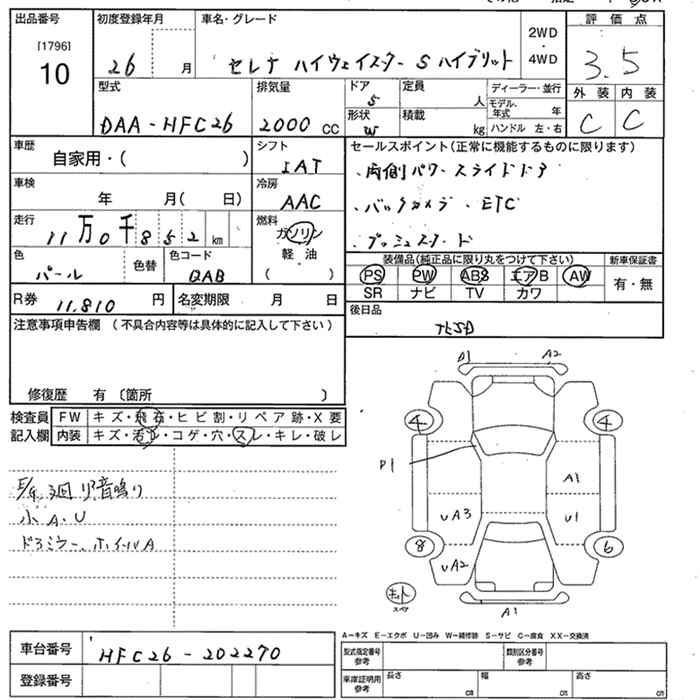 出品番号 初度登録年月 車名・グレード 評価点
[1796]
10 26 月 セレナ ハイウェイスター S ハイブリット 2WD・4WD 3.5
型式 排気量 ドア 5 定員 人 ディーラー・並行 外装 内装
DAA-HFC26 2000 cc 形状 W 積載 kg モデル年式 年 C C
ハンドル 左・右
車歴 自家用・( ) シフト IAT セールスポイント(正常に機能するものに限ります)
車検 年 月( 日) 冷房 AAC ・両側パワースライドドア
走行 11万0千852km 燃料 ガソリン ・バックカメラ・ETC
色 パール 色替 色コード QAB 軽油 ( ) ・プッシュスタート
装備品(純正品に限り丸をつけて下さい) 新車保証書
PS PW ABS エアB AW 有・無
SR ナビ TV カワ
R券 11.810 円 名変期限 月 日
後日品
注意事項申告欄(不具合内容等は具体的に記入して下さい)
修復歴 有〔箇所 〕
検査員 FW キズ・飛石・ヒビ割・リペア跡・X要
記入欄 内装 キズ・汚レ・コゲ・穴・スレ・キレ・破レ
廻り音鳴り
小A・U
ドアミラー、ホイールA
D1 A2
4 4
D1 A1
UA3 U1
8 6
UA2
スペア
A1
A-キズ E-エクボ U-凹み W-補修跡 S-サビ C-腐食 XX-交換済
車台番号 HFC26-202270
登録番号
型式指定番号 参考 類別区分番号 参考
車庫証明用 参考 長さ cm 幅 cm 高さ cm